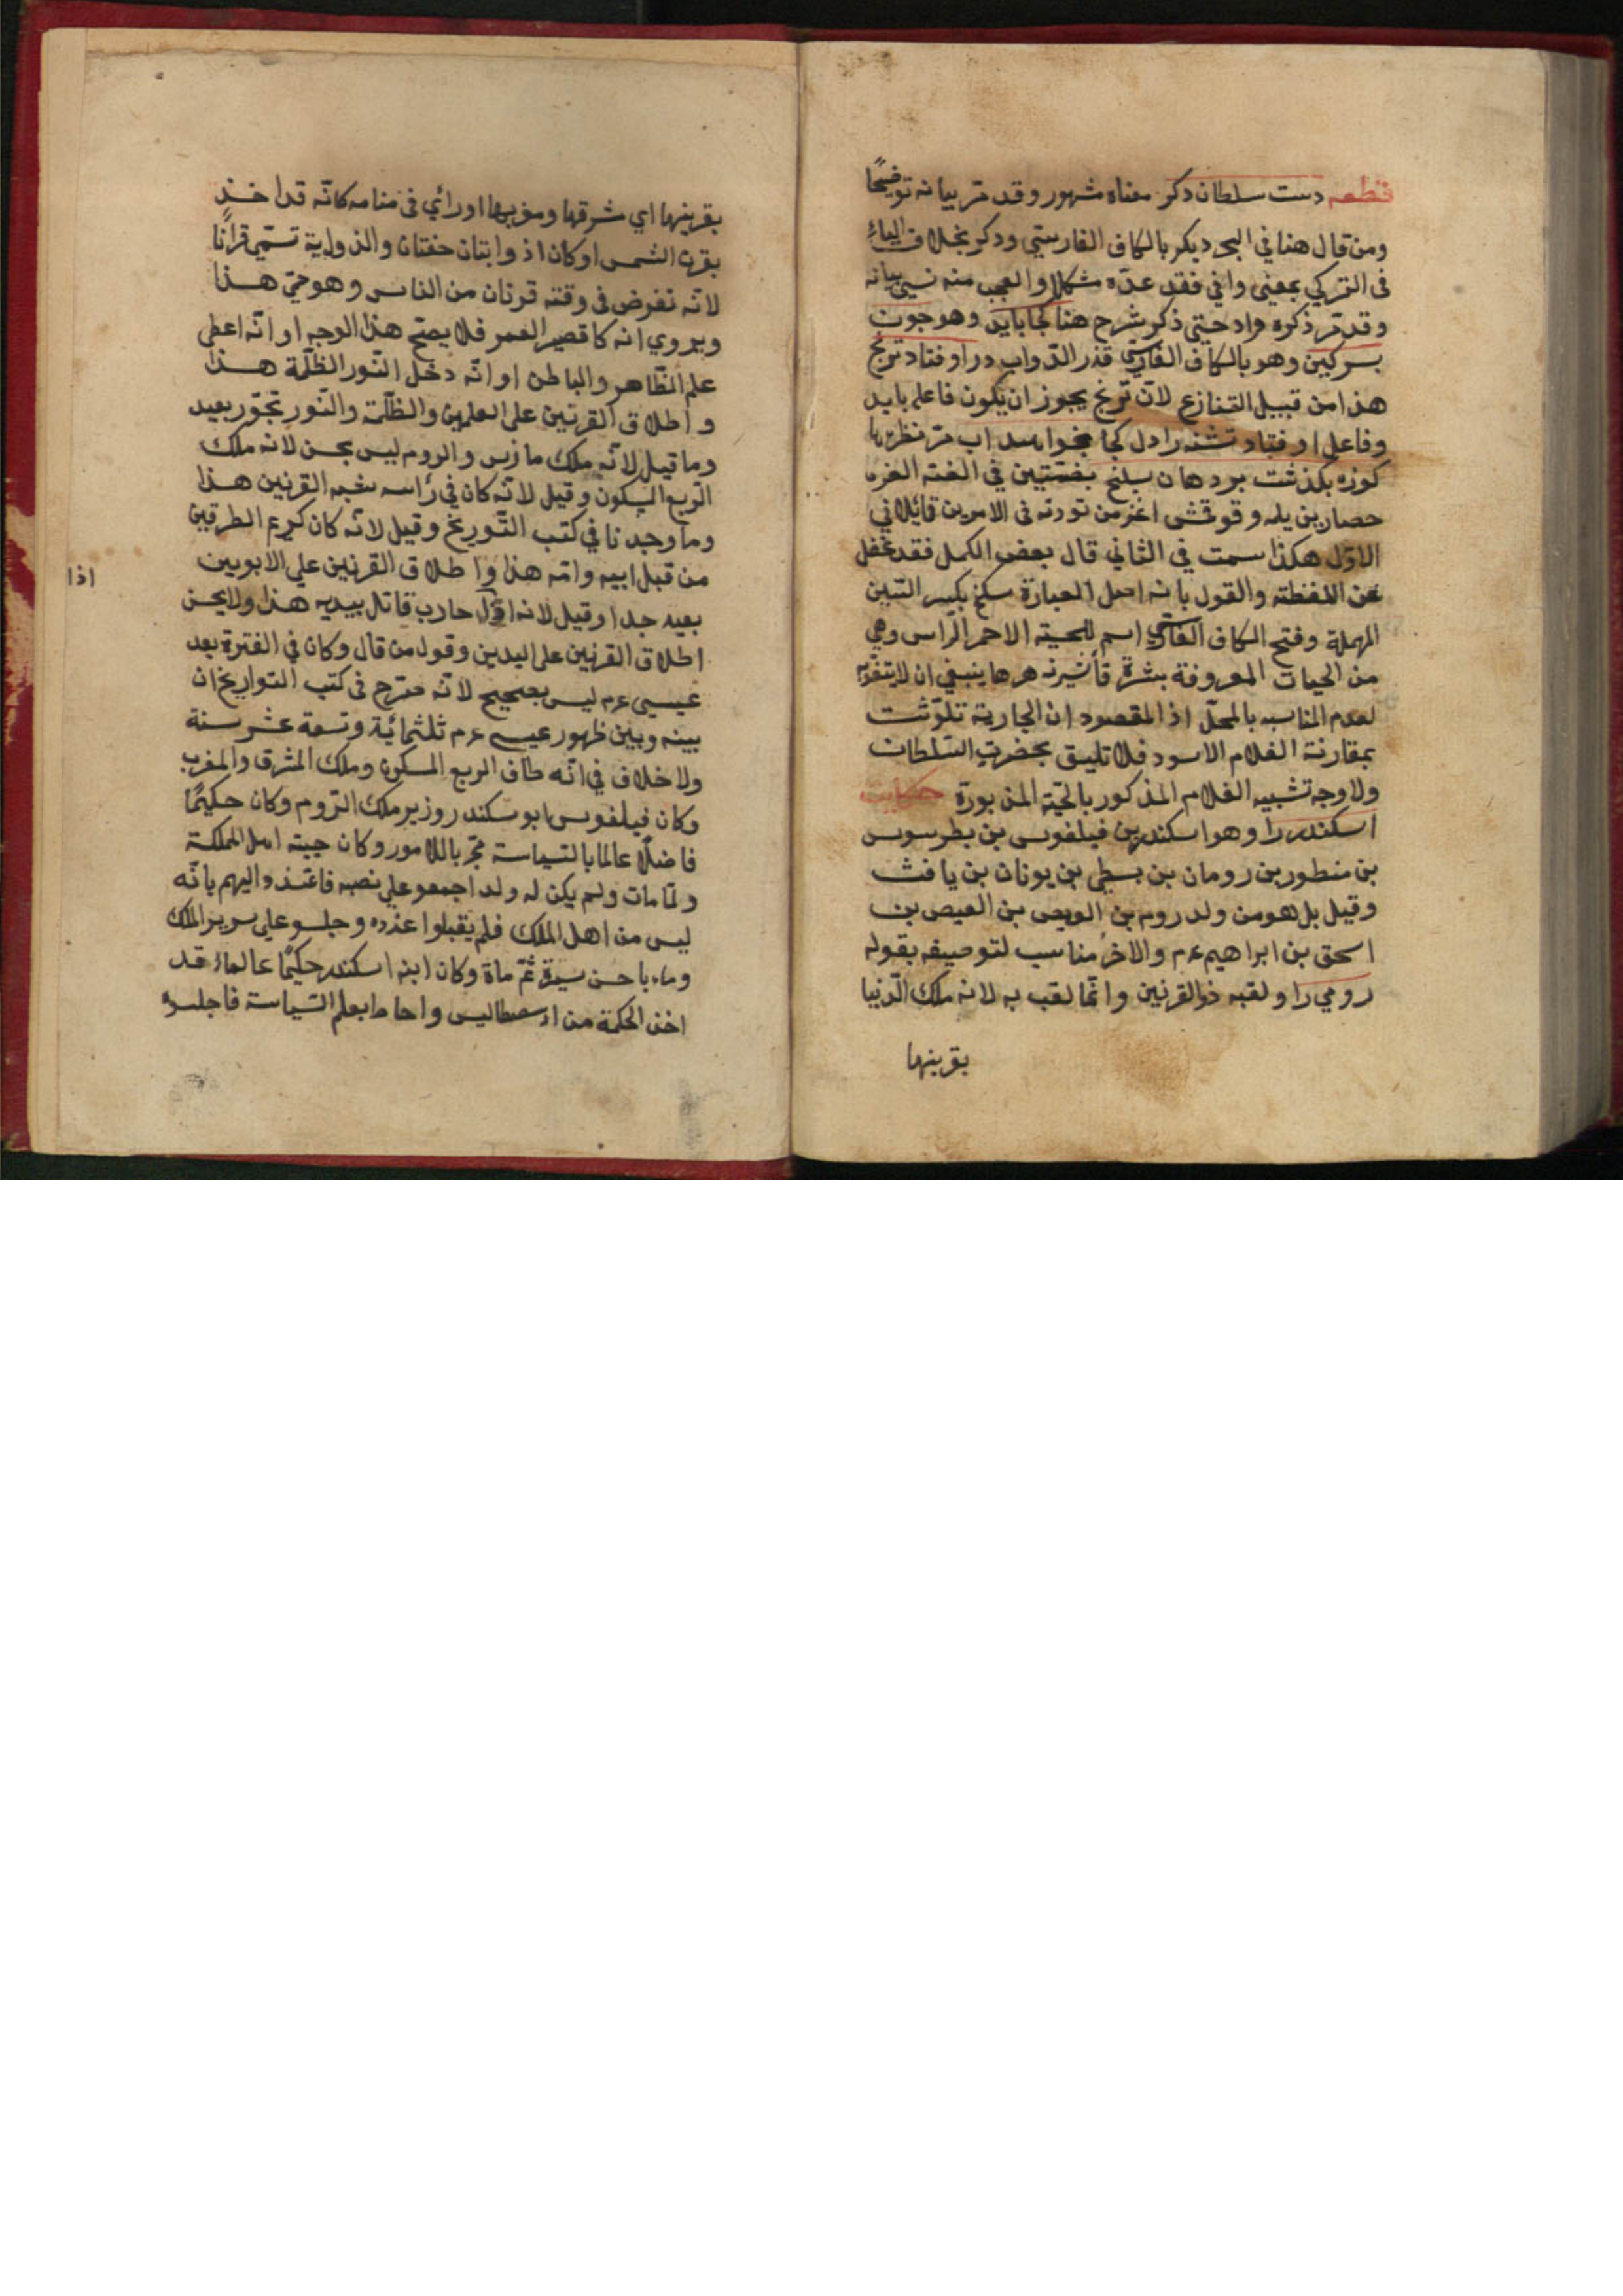 قطعه دست سلطان دكر معناه مشهور وقد مر بيانه توضيحًا
ومن قال هنا في البحر ديكر بالكاف الفارسي ودكر بخلاف الياء
في التركي بمعنى وافي فقد عده مشكلا والعجب منه نسي بيانه
وقد مر ذكره مرادحتى ذكر شرح هنا كجا بايد وهو جون
بسركين وهو بالكاف الفارسي قذر الدواب در اوفتاد ترنج
هذا من قبيل التنازع لان ترنج يجوز ان يكون فاعل بايد
وفاعل اوفتاد تشنه را دل كجا بخواهد اب مر نظيرها
كوزه بكذشت بر دهان سلنج بضمتين في الغته الغر
حصار بن يله وقوقشى اغز من تورته في الامرين قائلا في
الاول هكذا سمت في الثاني قال بعض الكمل فقد غفل
عن اللفظته والقول بانه اصل العبارة سكنج بكسر السين
المهملة وفتح الكاف الفارسي اسم للحيته الاحمر الراس وهي
من الحيات المعروفة بشرة تأشيرنه هرها ينبغي ان لا يتفوه
لعدم المناسبه بالمحل اذ المقصود ان الجارية تلوثت
بمقارنة الغلام الاسود فلا تليق بحضرت السلطان
ولا وجه تشبيه الغلام المذكور بالحية المزبورة حكايت
اسكندر را وهو اسكندر بن فيلفوس بن بطرسوس
بن منطور بن رومان بن بسطي بن يونان بن يافث
وقيل بل هو من ولد روم بن الويص بن العيص بن
اسحق بن ابراهيم ءم والاخر مناسب لتوصيفه بقوله
رومي را ولقبه ذو القرنين وانما لقب به لانه ملك الدنيا
بقرينها
بقرينها اي شرقها ومغربها اورائي في منامه كانه قد اخذ
بقرن الشمس او كان اذوابتان حفتان والذوابة تسمى قرانًا
لانه نفرض في وقته قرنان من الناس وهو حي هذا
ويروي انه كا قصير العمر فلا يصح هذا الوجه او انه اعطى
علم الظاهر والباطن او انه دخل النور الظلمة هذا
واطلاق القرنين على العلمين والظلمة والنور تجوز بعيد
وما قيل لانه ملك مازس والروم ليس بحسن لانه ملك
الربع السكون وقيل لانه كان في رأسه شبه القرنين هذا
وما وجدنا في كتب التوريخ وقيل لانه كان كريم الطرقين
من قبل ابيه وامه هذا واطلاق القرنين على الابويين
اذا
بعيد جدا وقيل لانه اول حارب قاتل بيديه هذا ولا يحسن
اطلاق القرنين على اليدين وقول من قال وكان في الفترة بعد
عيسى ءم ليس بصحيح لانه مصرح في كتب التواريخ ان
بينه وبين ظهور عيسى ءم ثلثمائة وتسعة عشر سنة
ولا خلاف في انه طاف الربع المسكون وملك المشرق والمغرب
وكان فيلفوس ابو سكندر وزير ملك الروم وكان حكيمًا
فاضلًا عالما بالسياسة مجر باللامور وكان جيته اهل المملكة
ولما مات ولم يكن له ولد اجمعو على نصبه فاعتذر اليهم بانه
ليس من اهل الملك فلم يقبلوا عذره وجلسو على سرير الملك
وماء باحسن سيرة ثم ماة وكان ابنه اسكندر حكيمًا عالماء قد
اخذ الحكمة من ارسطاليس واحاط بعلم السياسة فاجلسوه